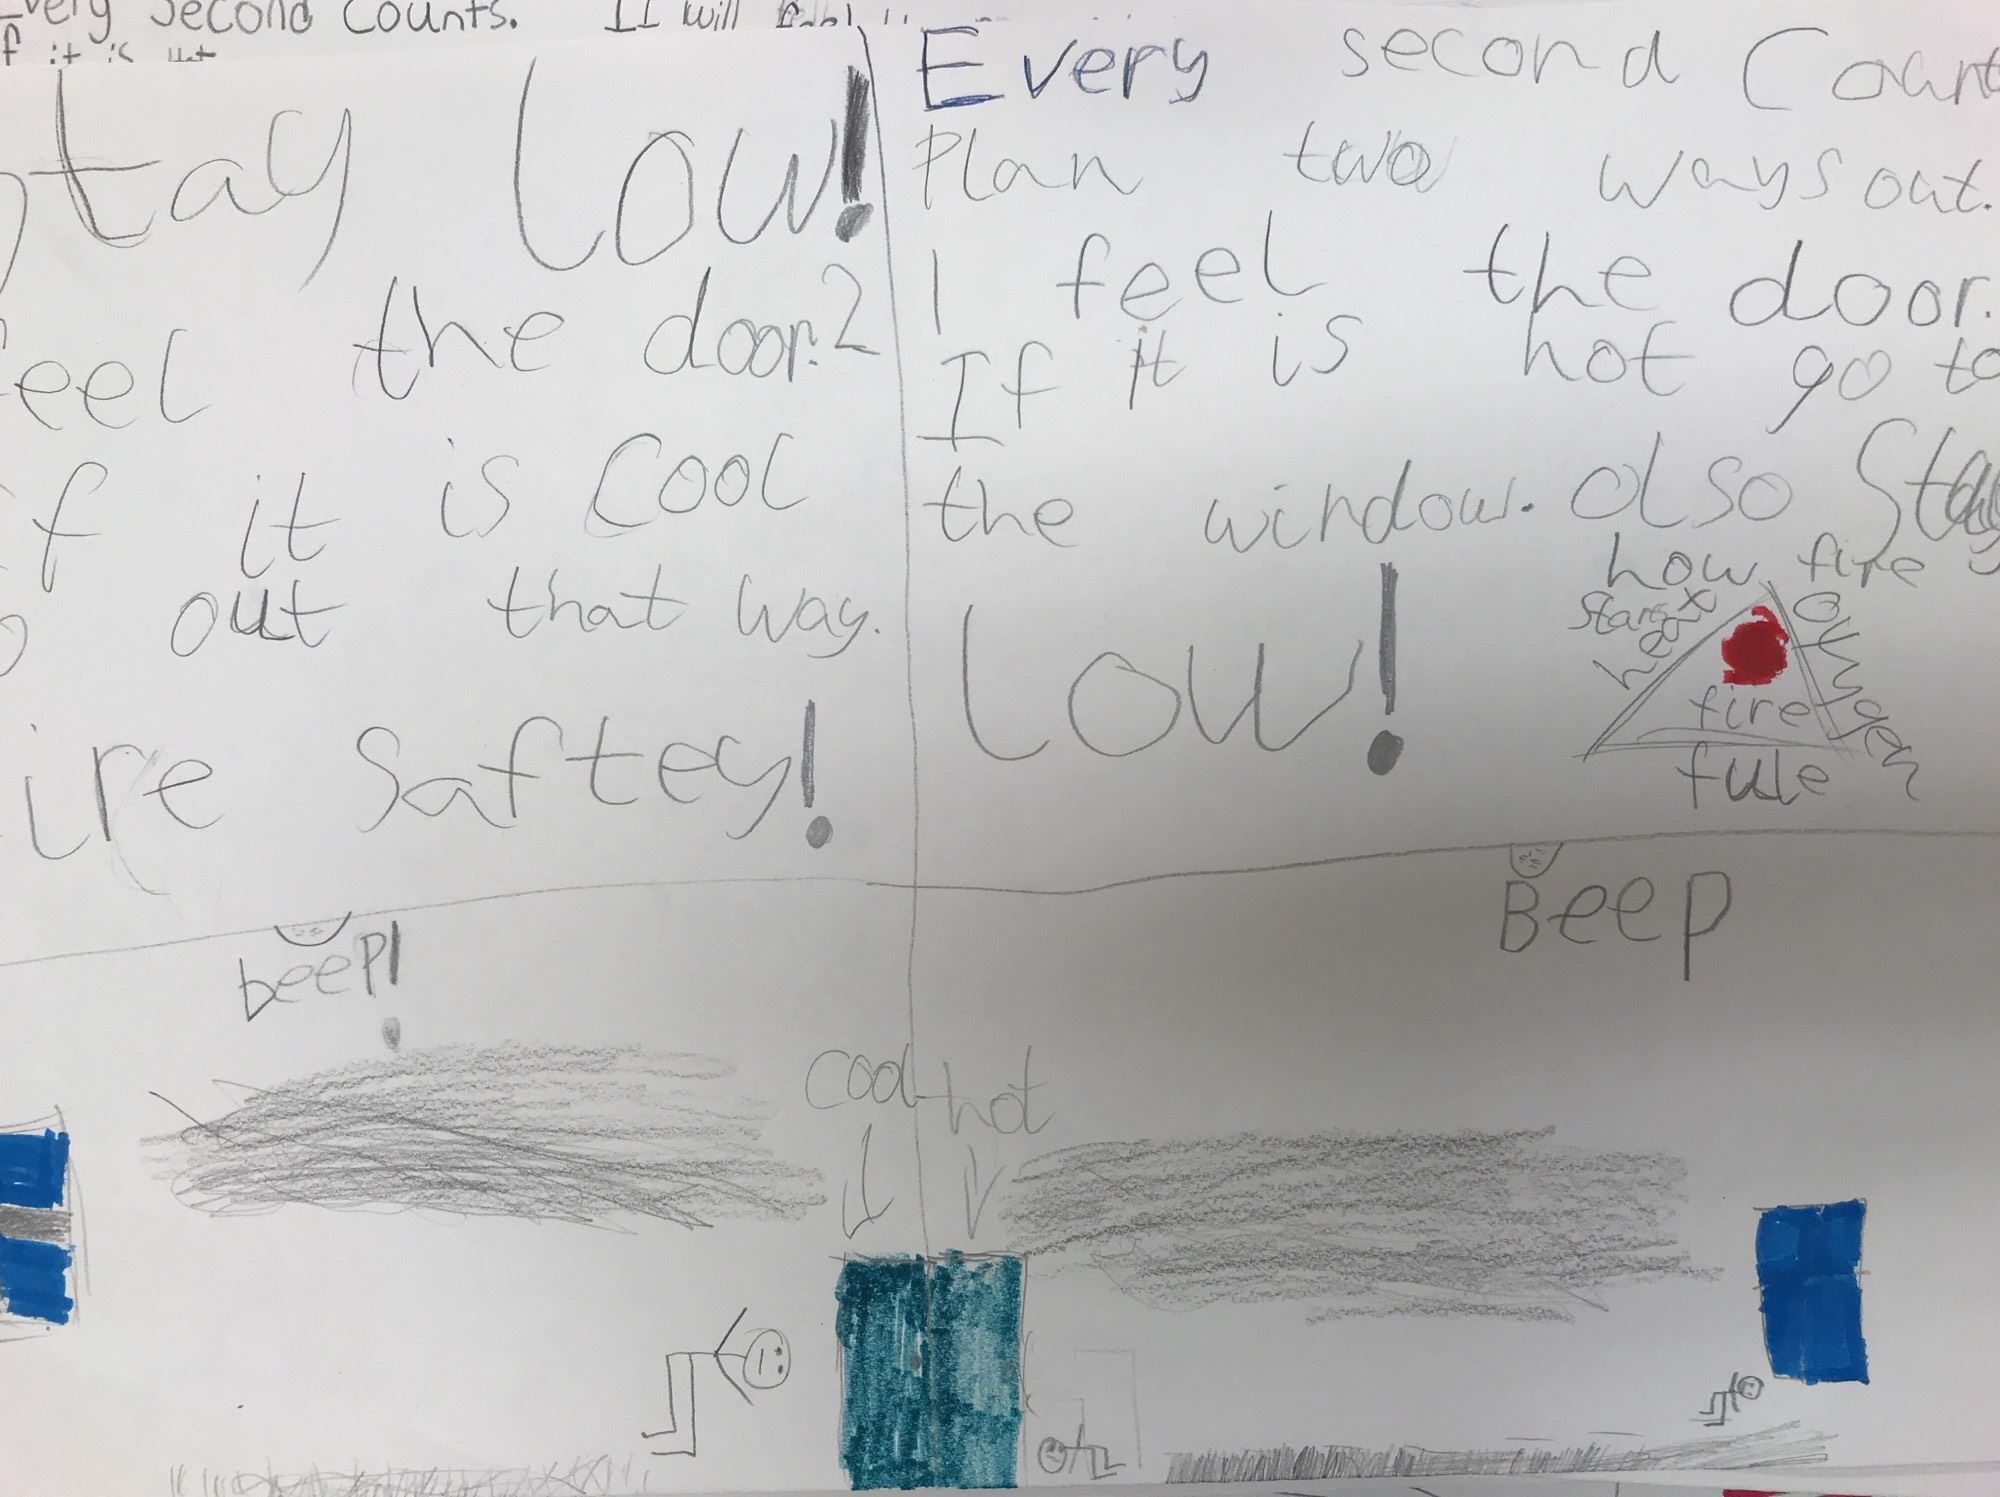 very Second Counts. II will feel
f it is Hot
Stay Low!
feel the door.?
if it is Cool
o out that way.
ire Saftey!
Every second Count
Plan two ways out.
I feel the door.
If it is hot go to
the window. also Stay
Low!
how fire
starts
heat
oxygen
fire
fule
beep!
Beep
cool
hot